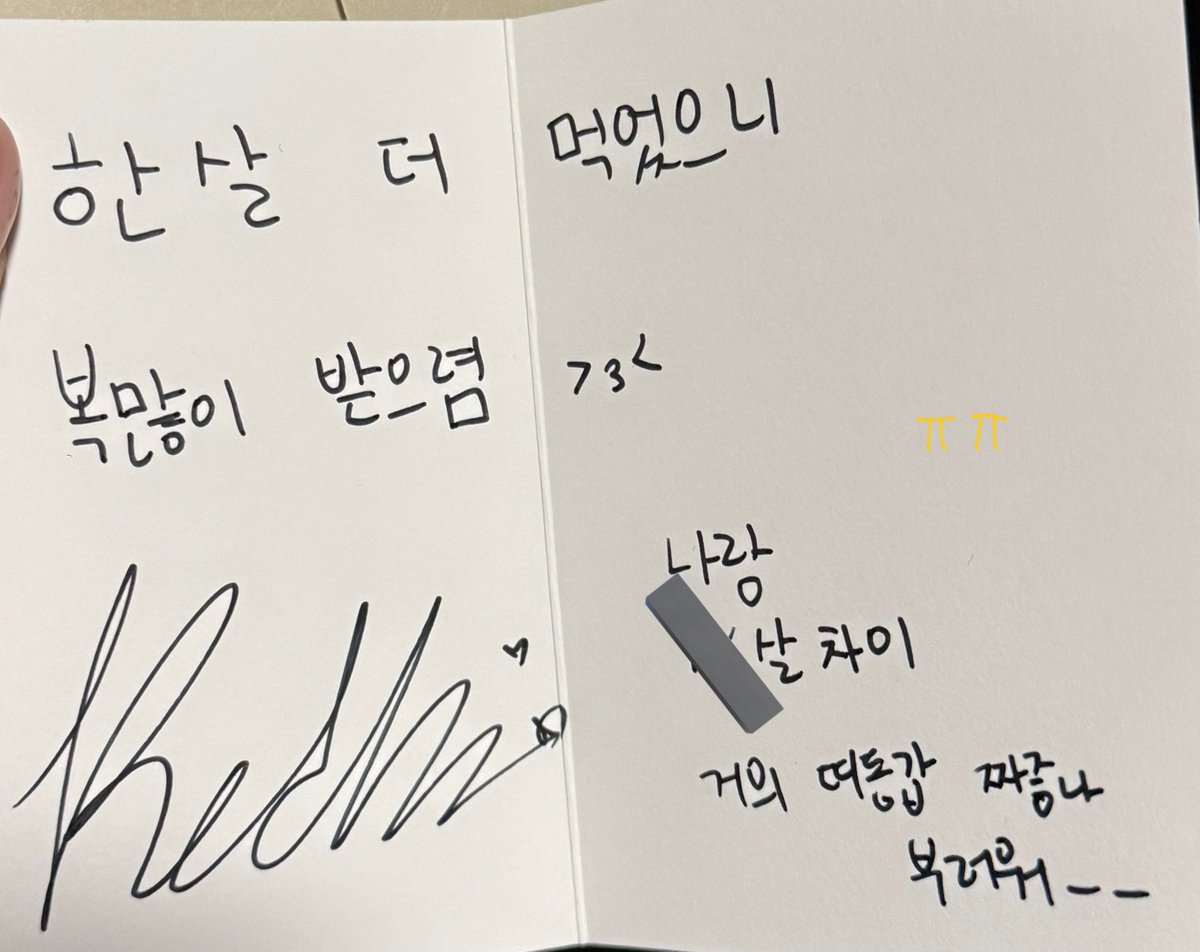 한살 더 먹었으니
복많이 받으렴 >3<
ㅠㅠ
나랑
살 차이
거의 띠동갑 짜증나
부러워--